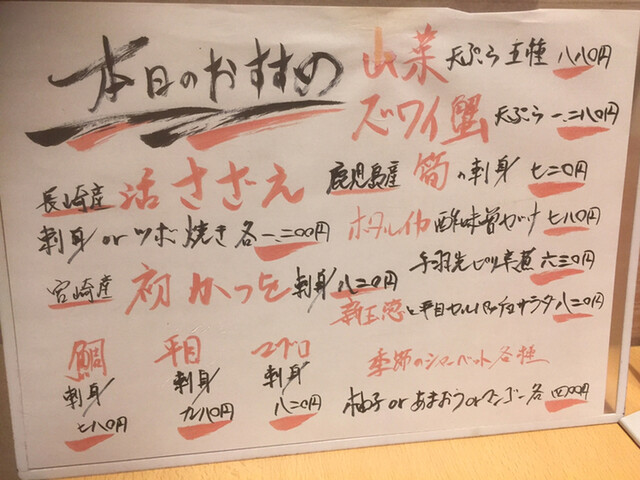 本日のおすすめ
山菜 天ぷら 五種 八八〇円
ズワイ蟹 天ぷら 一、二八〇円
長崎産 活さざえ
刺身 or ツボ焼き 各一、二〇〇円
鹿児島産 筍の刺身 七二〇円
ホタルイカ 酢味噌がけ 七八〇円
宮崎産 初かつを 刺身 八二〇円
手羽先ピリ辛煮 六三〇円
新玉葱と平目カルパッチョサラダ 八二〇円
鯛 刺身 七八〇円
平目 刺身 九八〇円
マグロ 刺身 八二〇円
季節のシャーベット各種
柚子 or あまおう or マンゴー 各 四〇〇円